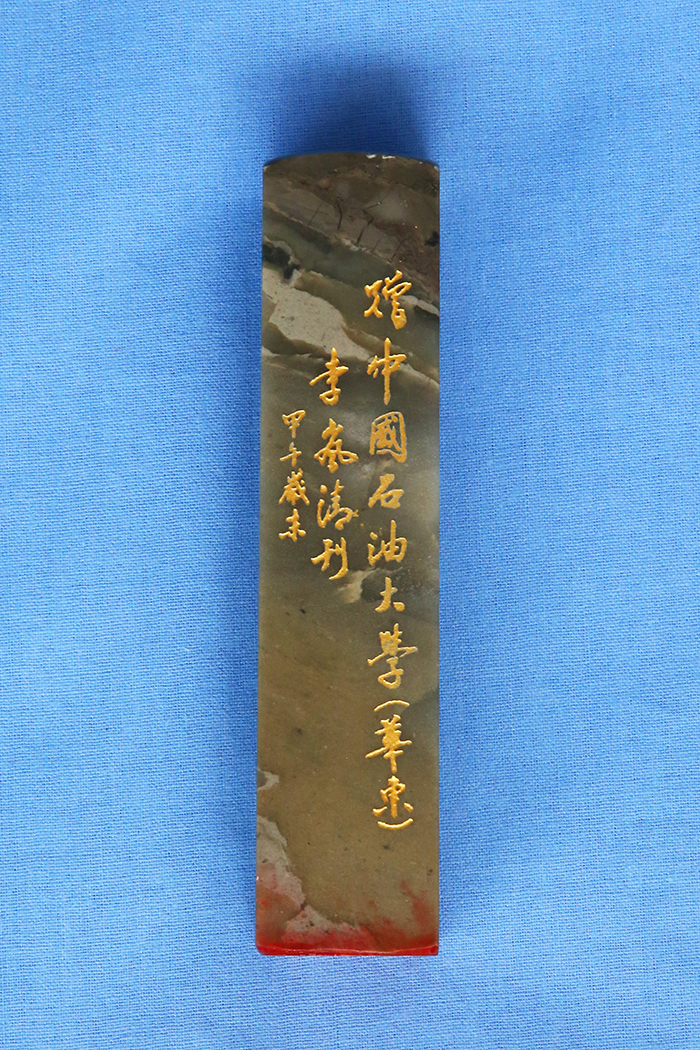 贈中國石油大學(華東)
李嵐清刊
甲午歲末